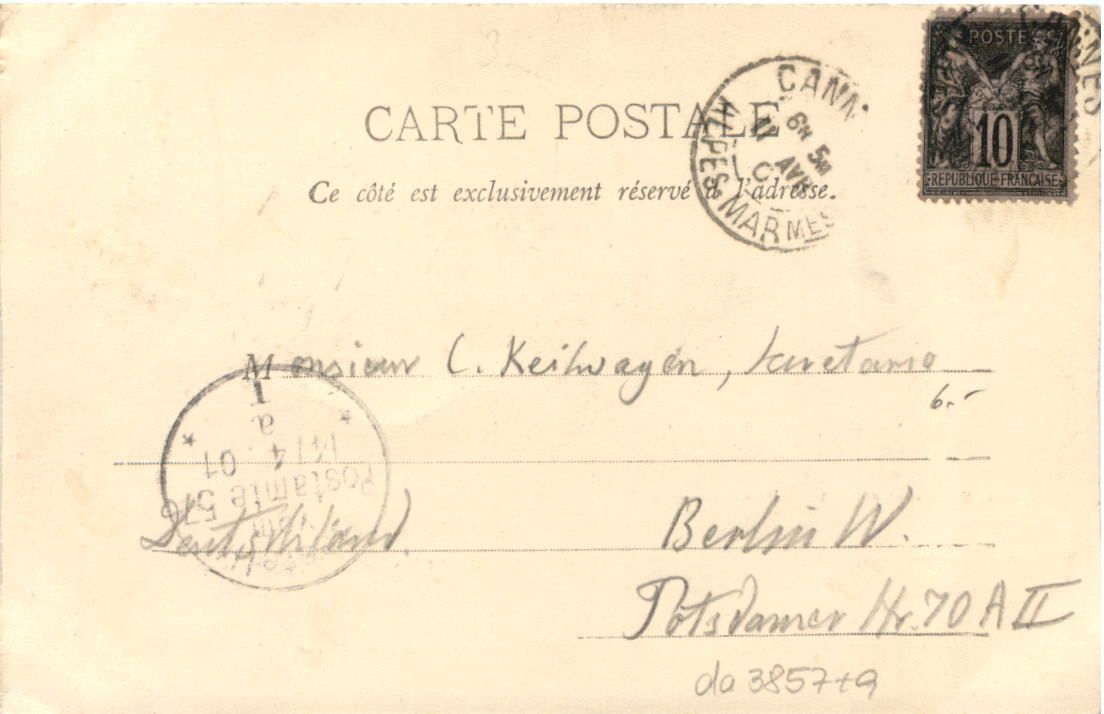 3
CANNES
POSTE
10
REPUBLIQUE FRANÇAISE
CANN
6H 5M
11 AVR
ALPES MARMES
CARTE POSTALE
Ce côté est exclusivement réservé à l'adresse.
Monsieur C. Keilwagen,
6.-
1
a
14/4 01
Postamte 57
Deutschland. Berlin W.
Potsdamer Str. 70 A II
da 3857+9